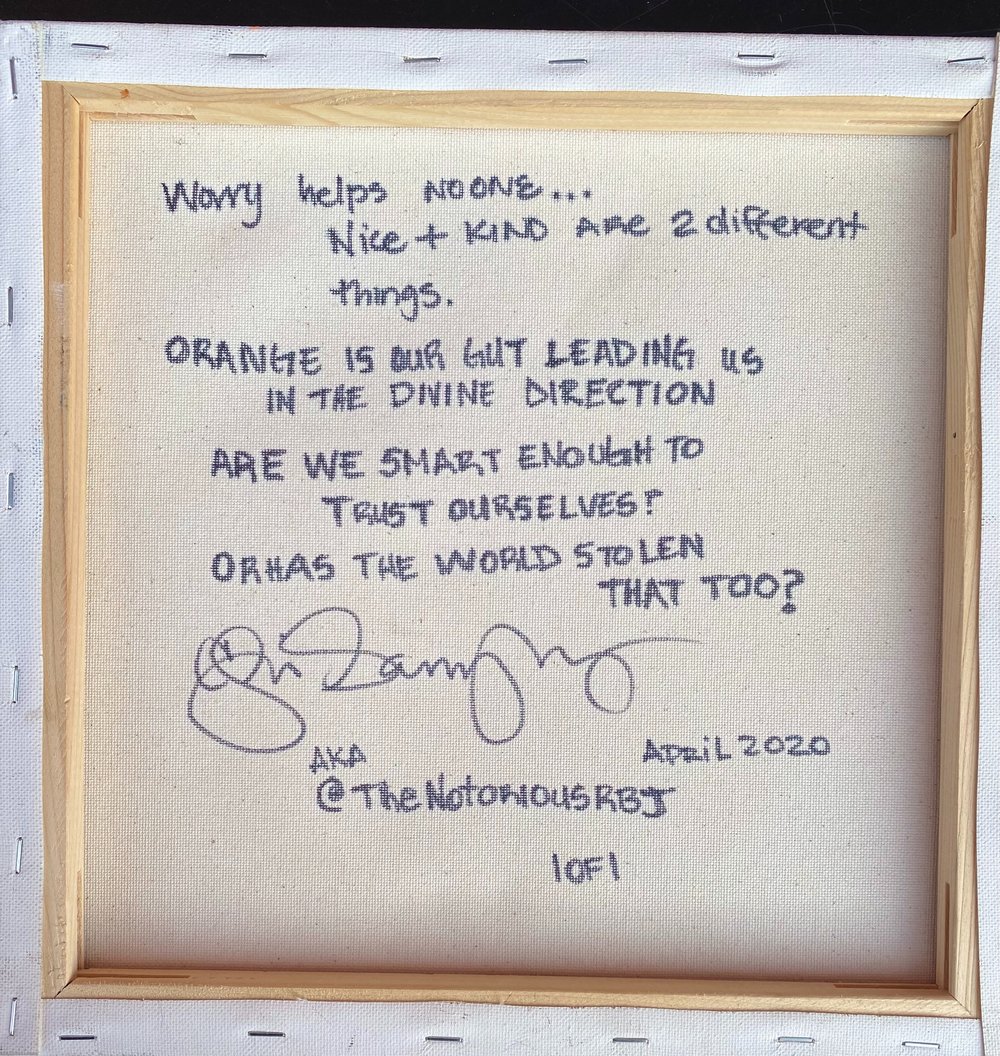 Worry helps NO ONE...
Nice + KIND ARE 2 different
things.
ORANGE IS OUR GUT LEADING US
IN THE DIVINE DIRECTION
ARE WE SMART ENOUGH TO
TRUST OURSELVES?
OR HAS THE WORLD STOLEN
THAT TOO?
AKA
APRIL 2020
@TheNotoriousRBJ
1 OF 1